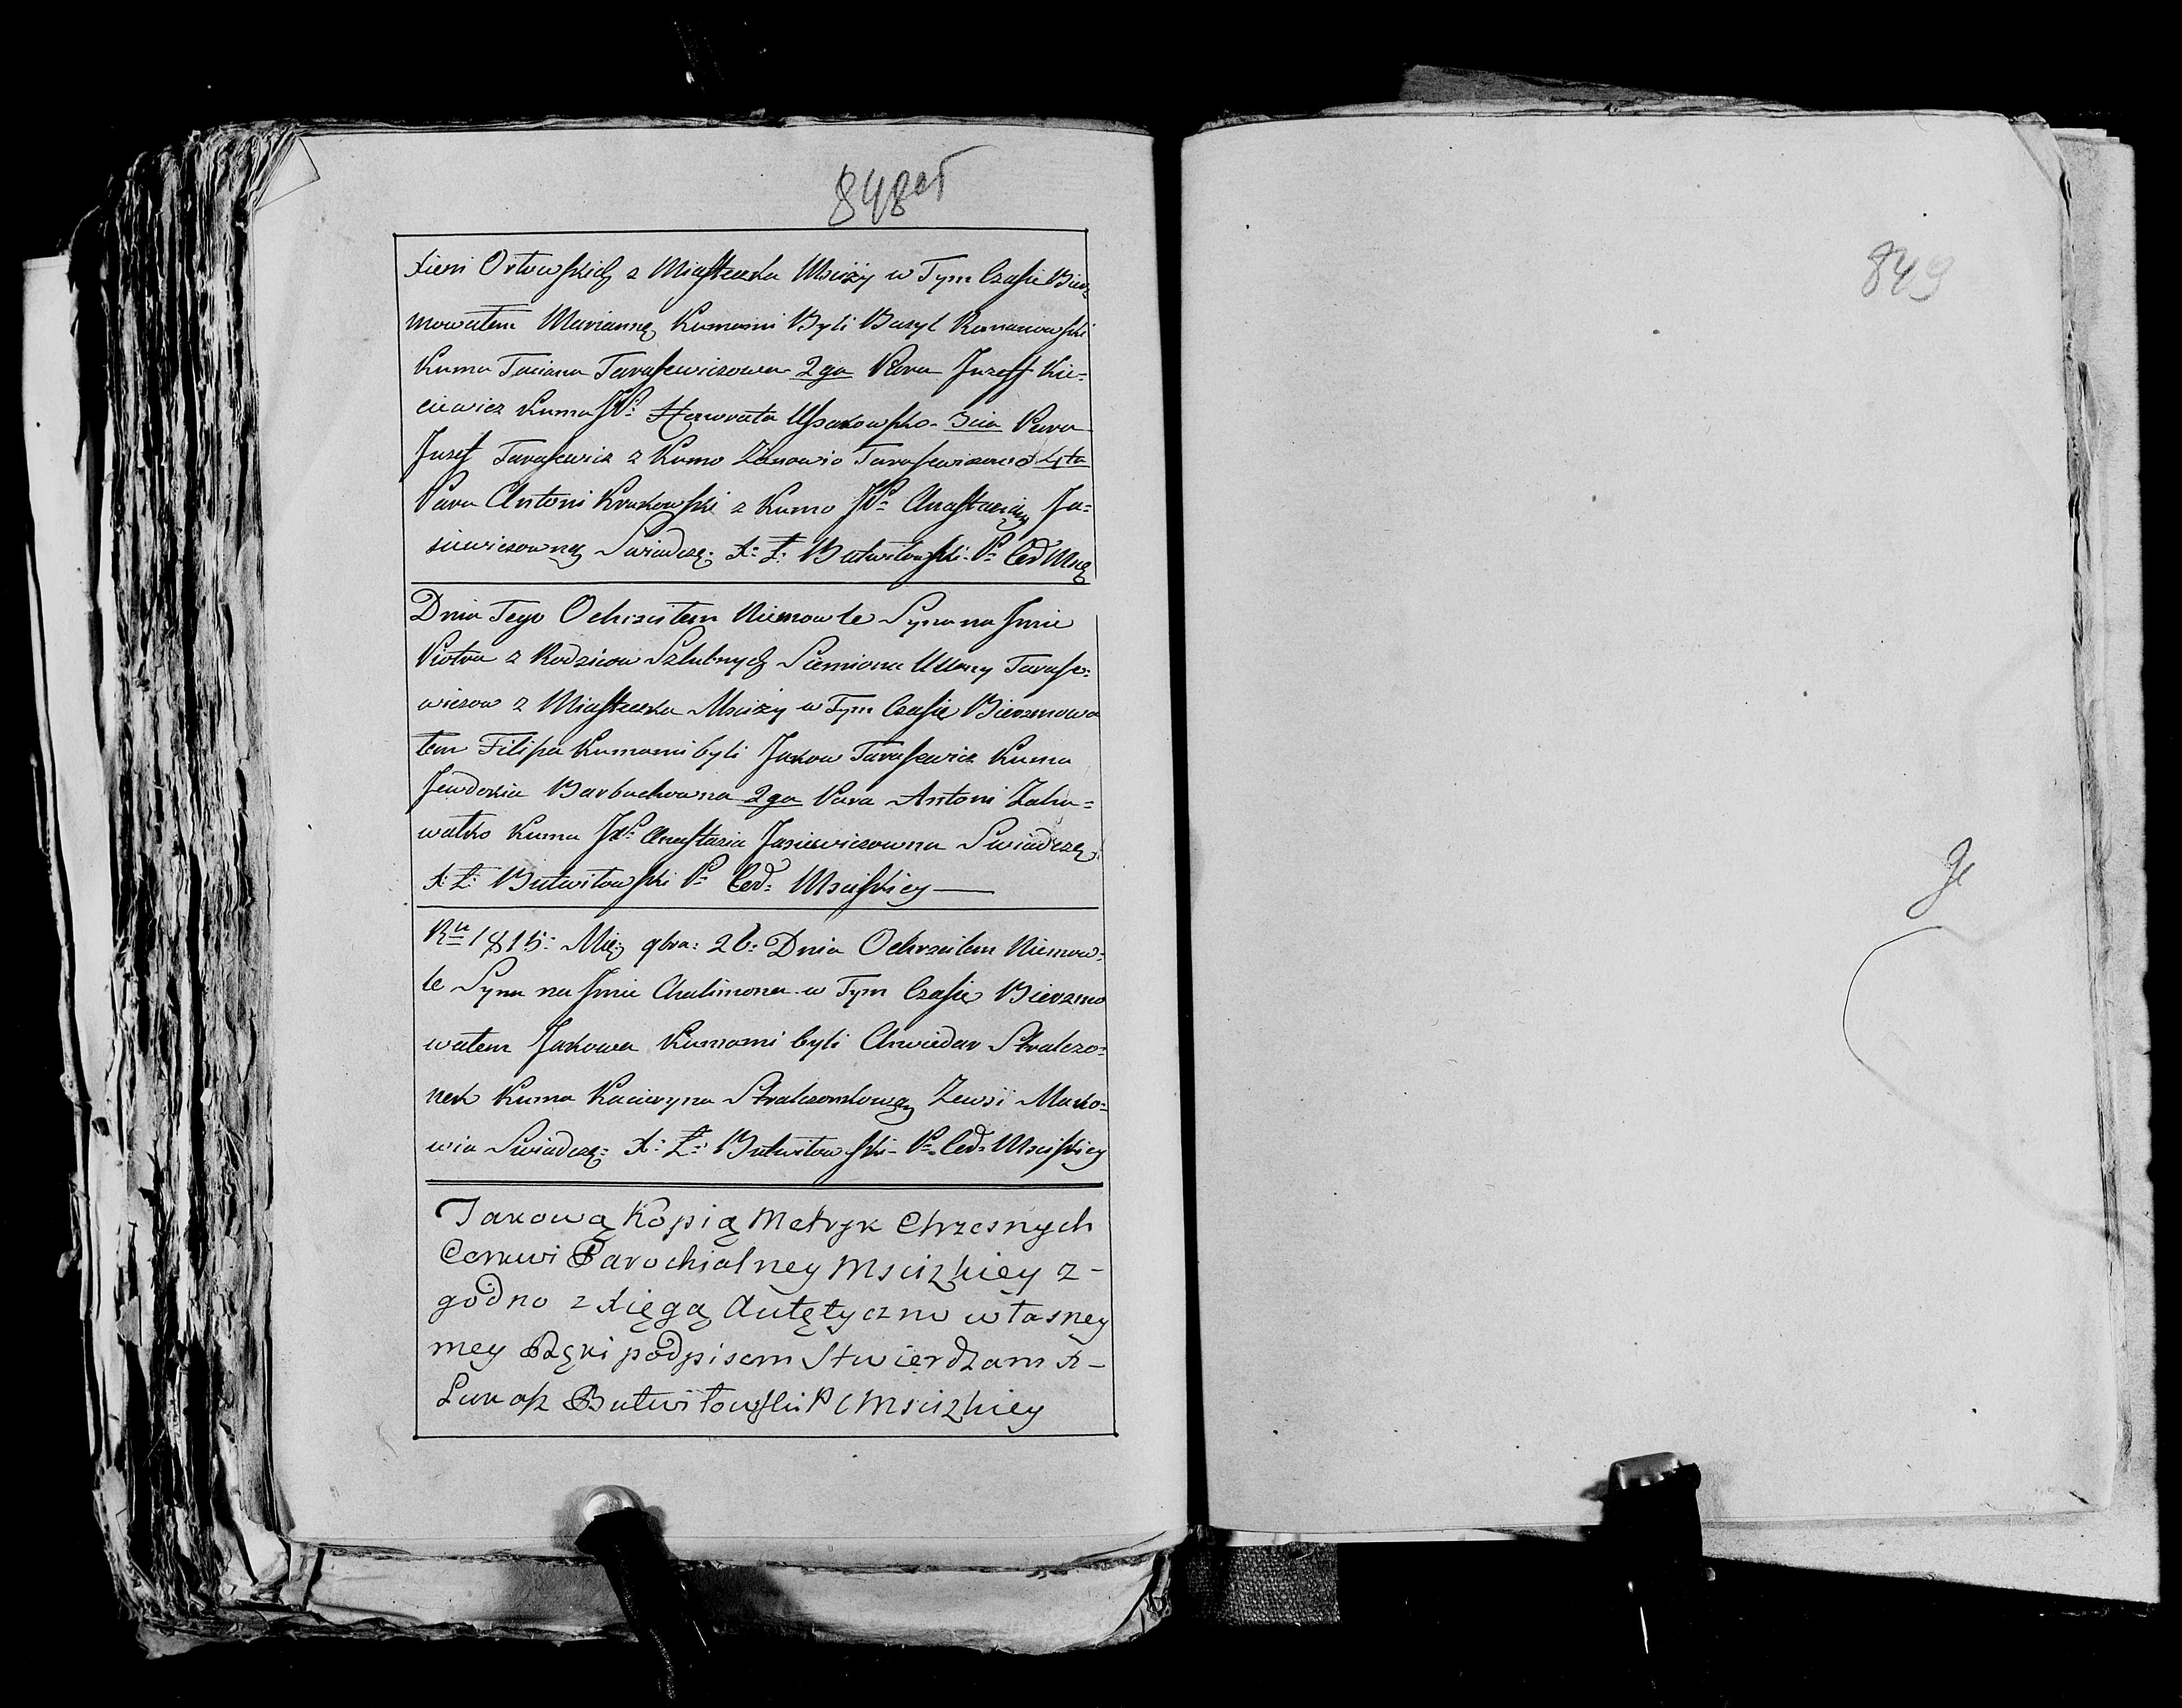 848об
Xieni Orłowskich z Miasteczka Mściży w Tym Czasie Bierz=
mowałem Mariannę Kumami Byli Bazyl Romanowski
Kuma Taciana Tarasewiczowa 2ga Para Juzeff Kie=
ciewicz Kuma JP: Honorata Uszakowska 3cia Para
Juzef Tarasewicz z Kumo Zenowio Tarasewiczowo 4ta
Para Antoni Krukowski z Kumo JP: Anastazią Ja=
siewiczowną Swiadczę: X: Ł: Butwiłowski P: Cer Msc
Dnia Tego Ochrzciłem Niemowle Syna na Jmie
Piotra z Rodzicow Szlubnych Siemiona Ullany Tarase=
wiczow z Miasteczka Msciży w Tym Czasie Bierzmowa
łem Filipa Kumami byli Jakow Tarasewicz Kuma
Jewdokia Barbachowna 2ga Para Antoni Zaha=
walko Kuma JP: Anastazia Jasiewiczowna Swiadczę
X: Ł: Butwiłowski P: Cer: Msciskiey
Rku 1815: Mię: 9bra: 26: Dnia Ochrzciłem Niemow=
le Syna na Jmie Chalimona w Tym Czasie Bierzmo
wałem Jakowa Kumami byli Chwiedar Stralczo=
nek Kuma Kacieryna Stralczonkowa Zewsi Mako=
wia Swiadczę: X: Ł: Butwiłowski P: Cer: Msciskiey
Takową Kopią Metryk Chrzesnych
Cerkwi Parochialney Msciżkiey z-
godno z Xięgą Autętyczno własney
mey Ręki podpisem Stwierdzam X-
Łukasz Butwiłowski P C Msciżkiey
849